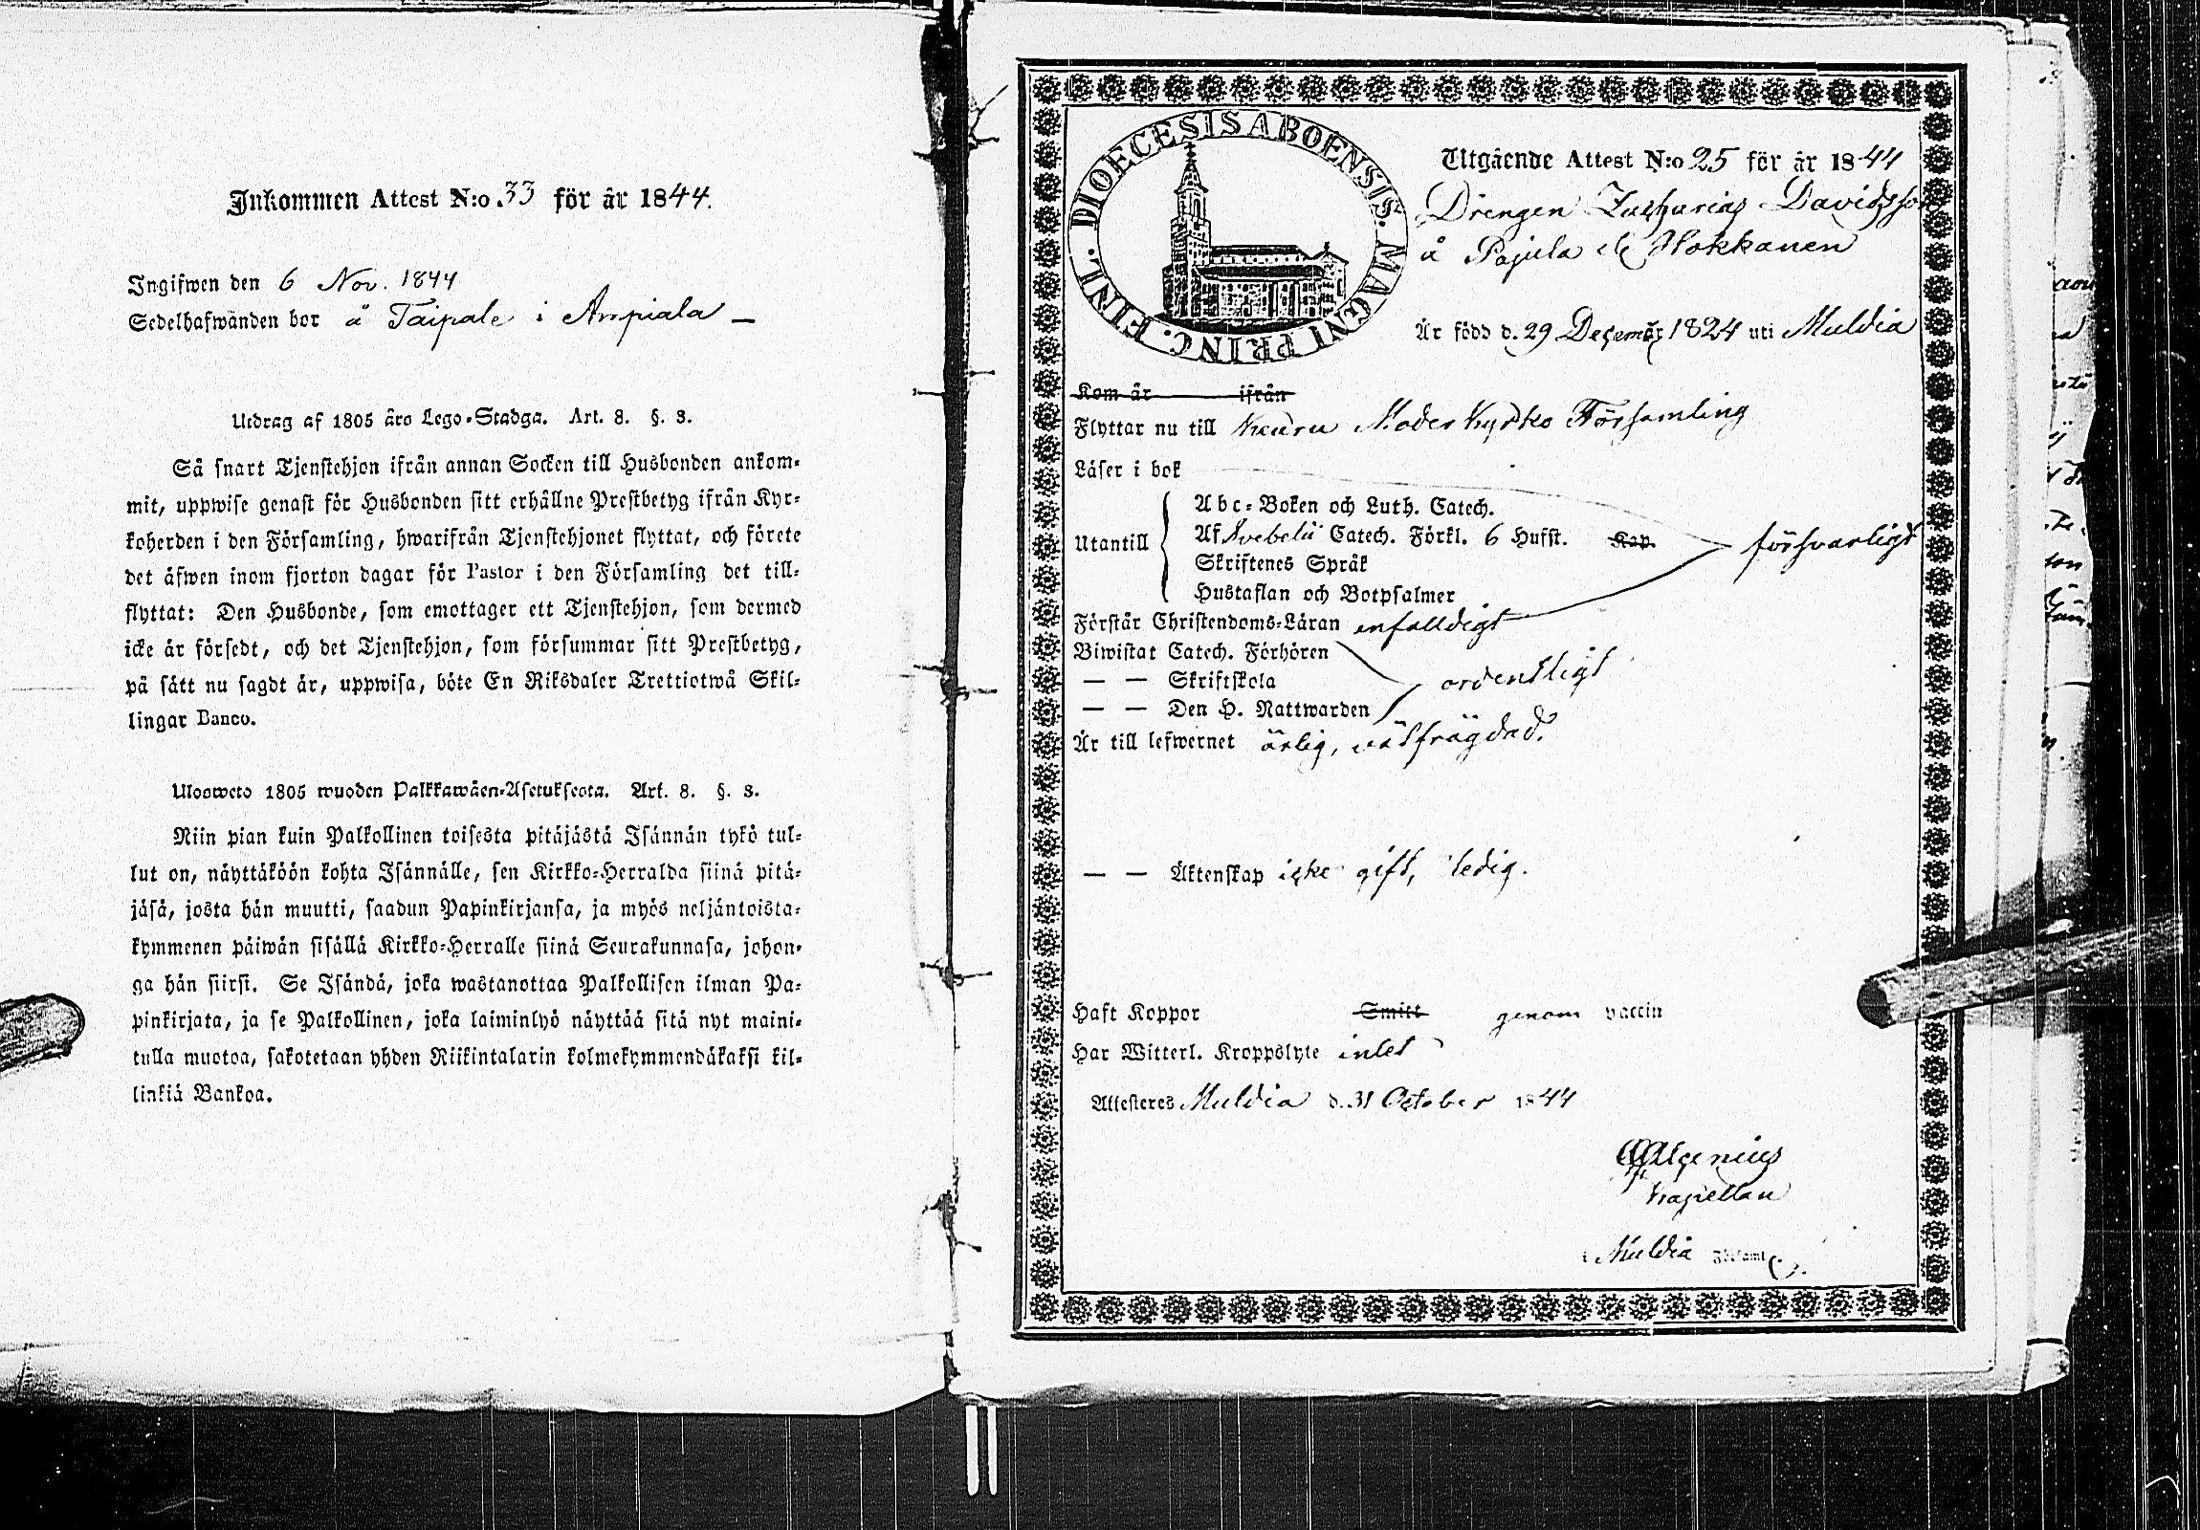 Inkommen Attest N:o 33 för år 1844.
Ingifwen den 6 Nov. 1844
Sedelhafwanden bor å Taipale i Ampiala —
Utdrag af 1805 års Lego-Stadga. Art. 8. §. 3.
Så snart Tjenstehjon ifrån annan Socken till Husbonden ankom-
mit, uppwise genast för Husbonden sitt erhållne Prestbetyg ifrån Kyr-
koherden i den Församling, hwarifrån Tjenstehjonet flyttat, och förete
det äfwen inom fjorton dagar för Pastor i den Församling det till-
flyttat: Den Husbonde, som emottager ett Tjenstehjon, som dermed
icke är försedt, och det Tjenstehjon, som försummar sitt Prestbetyg,
på sätt nu sagdt är, uppwisa, böte En Riksdaler Trettiotwå Skil-
lingar Banco.
Ulosweto 1805 wuoden Palkkawäen-Asetuksesta. Art. 8. §. 3.
Niin pian kuin Palkollinen toisesta pitäjästä Isännän tykö tul-
lut on, näyttäköön kohta Isännälle, sen Kirkko-Herralda siinä pitä-
jäsä, josta hän muutti, saadun Papinkirjansa, ja myös neljäntoista-
kymmenen päiwän sisällä Kirkko-Herralle siinä Seurakunnasa, johon-
ga hän siirsi. Se Isändä, joka wastanottaa Palkollisen ilman Pa-
pinkirjata, ja se Palkollinen, joka laiminlyö näyttää sitä nyt maini-
tulla muotoa, sakotetaan yhden Riikintalarin kolmekymmendäkaksi kil-
linkiä Bankoa.
DIOECESIS ABOENSIS. MAGNI PRINC. FINL.
Utgående Attest N:o 25 för år 1844
Drengen Zacharias Davidsson
å Pajula Hokkanen
Är född d. 29 Decemb. 1824 uti Muldia
Kom år ifrån
Flyttar nu till Keuru Moderkyrko Församling
Läser i bok
Abc-Boken och Luth. Catech.
Utantill Af Svebelii Catech. Förkl. 6 Hufst. Kap. försvarligt
Skriftenes Språk
Hustaflan och Botpsalmer
Förstår Christendoms-Läran enfalldigt
Biwistat Catech. Förhören
— — Skriftskola ordentligt
— — Den H. Nattwarden
Är till lefwernet ärlig, välfrägdad.
— — Äktenskap icke gift, ledig.
Haft Koppor Smitt genom vaccin
Har Witterl. Kroppslyte intet
Attesteres Muldia d. 31 October 1844
Kapellan
i Muldia Församl.